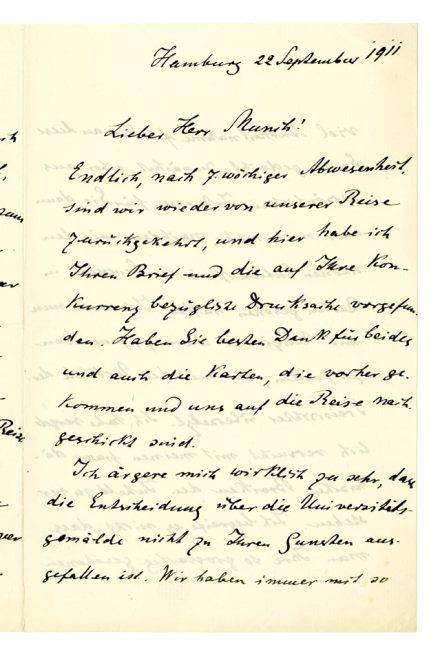 Hamburg 22 September 1911
Lieber Herr Munch!
Endlich, nach 7 wöchiger Abwesenheit,
sind wir wieder von unserer Reise
zurückgekehrt, und hier habe ich
Ihren Brief und die auf Ihre Kon-
kurrenz bezügliche Drucksache vorgefun-
den. Haben Sie besten Dank für beides
und auch die Karten, die vorher ge-
kommen und uns auf die Reise nach-
geschickt sind.
Ich ärgere mich wirklich zu sehr, dass
die Entscheidung über die Universitäts-
gemälde nicht zu Ihren Gunsten aus-
gefallen ist. Wir haben immer mit so
Reise